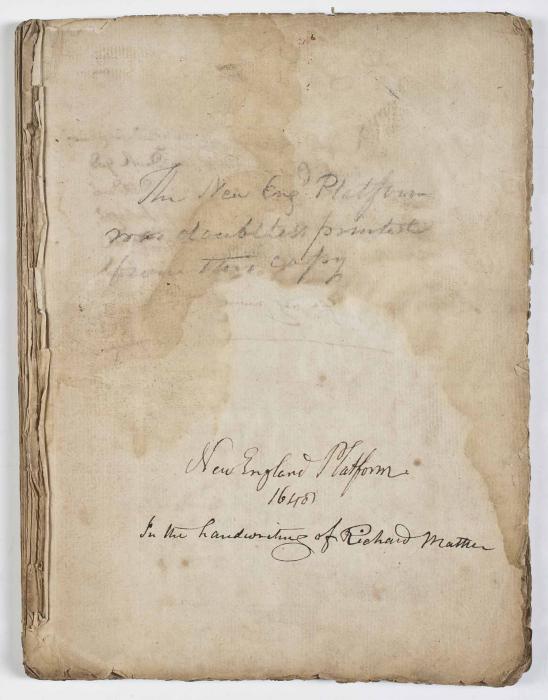 The New Eng^d Platform
was doubtless printed
from this copy
New England Platform
1648
In the handwriting of Richard Mather